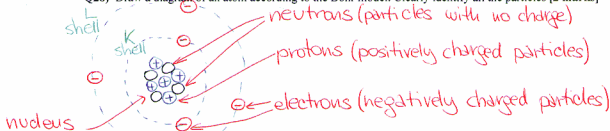 L
shell
K
shell
neutrons (particles with no charge)
protons (positively charged particles)
electrons (negatively charged particles)
nucleus